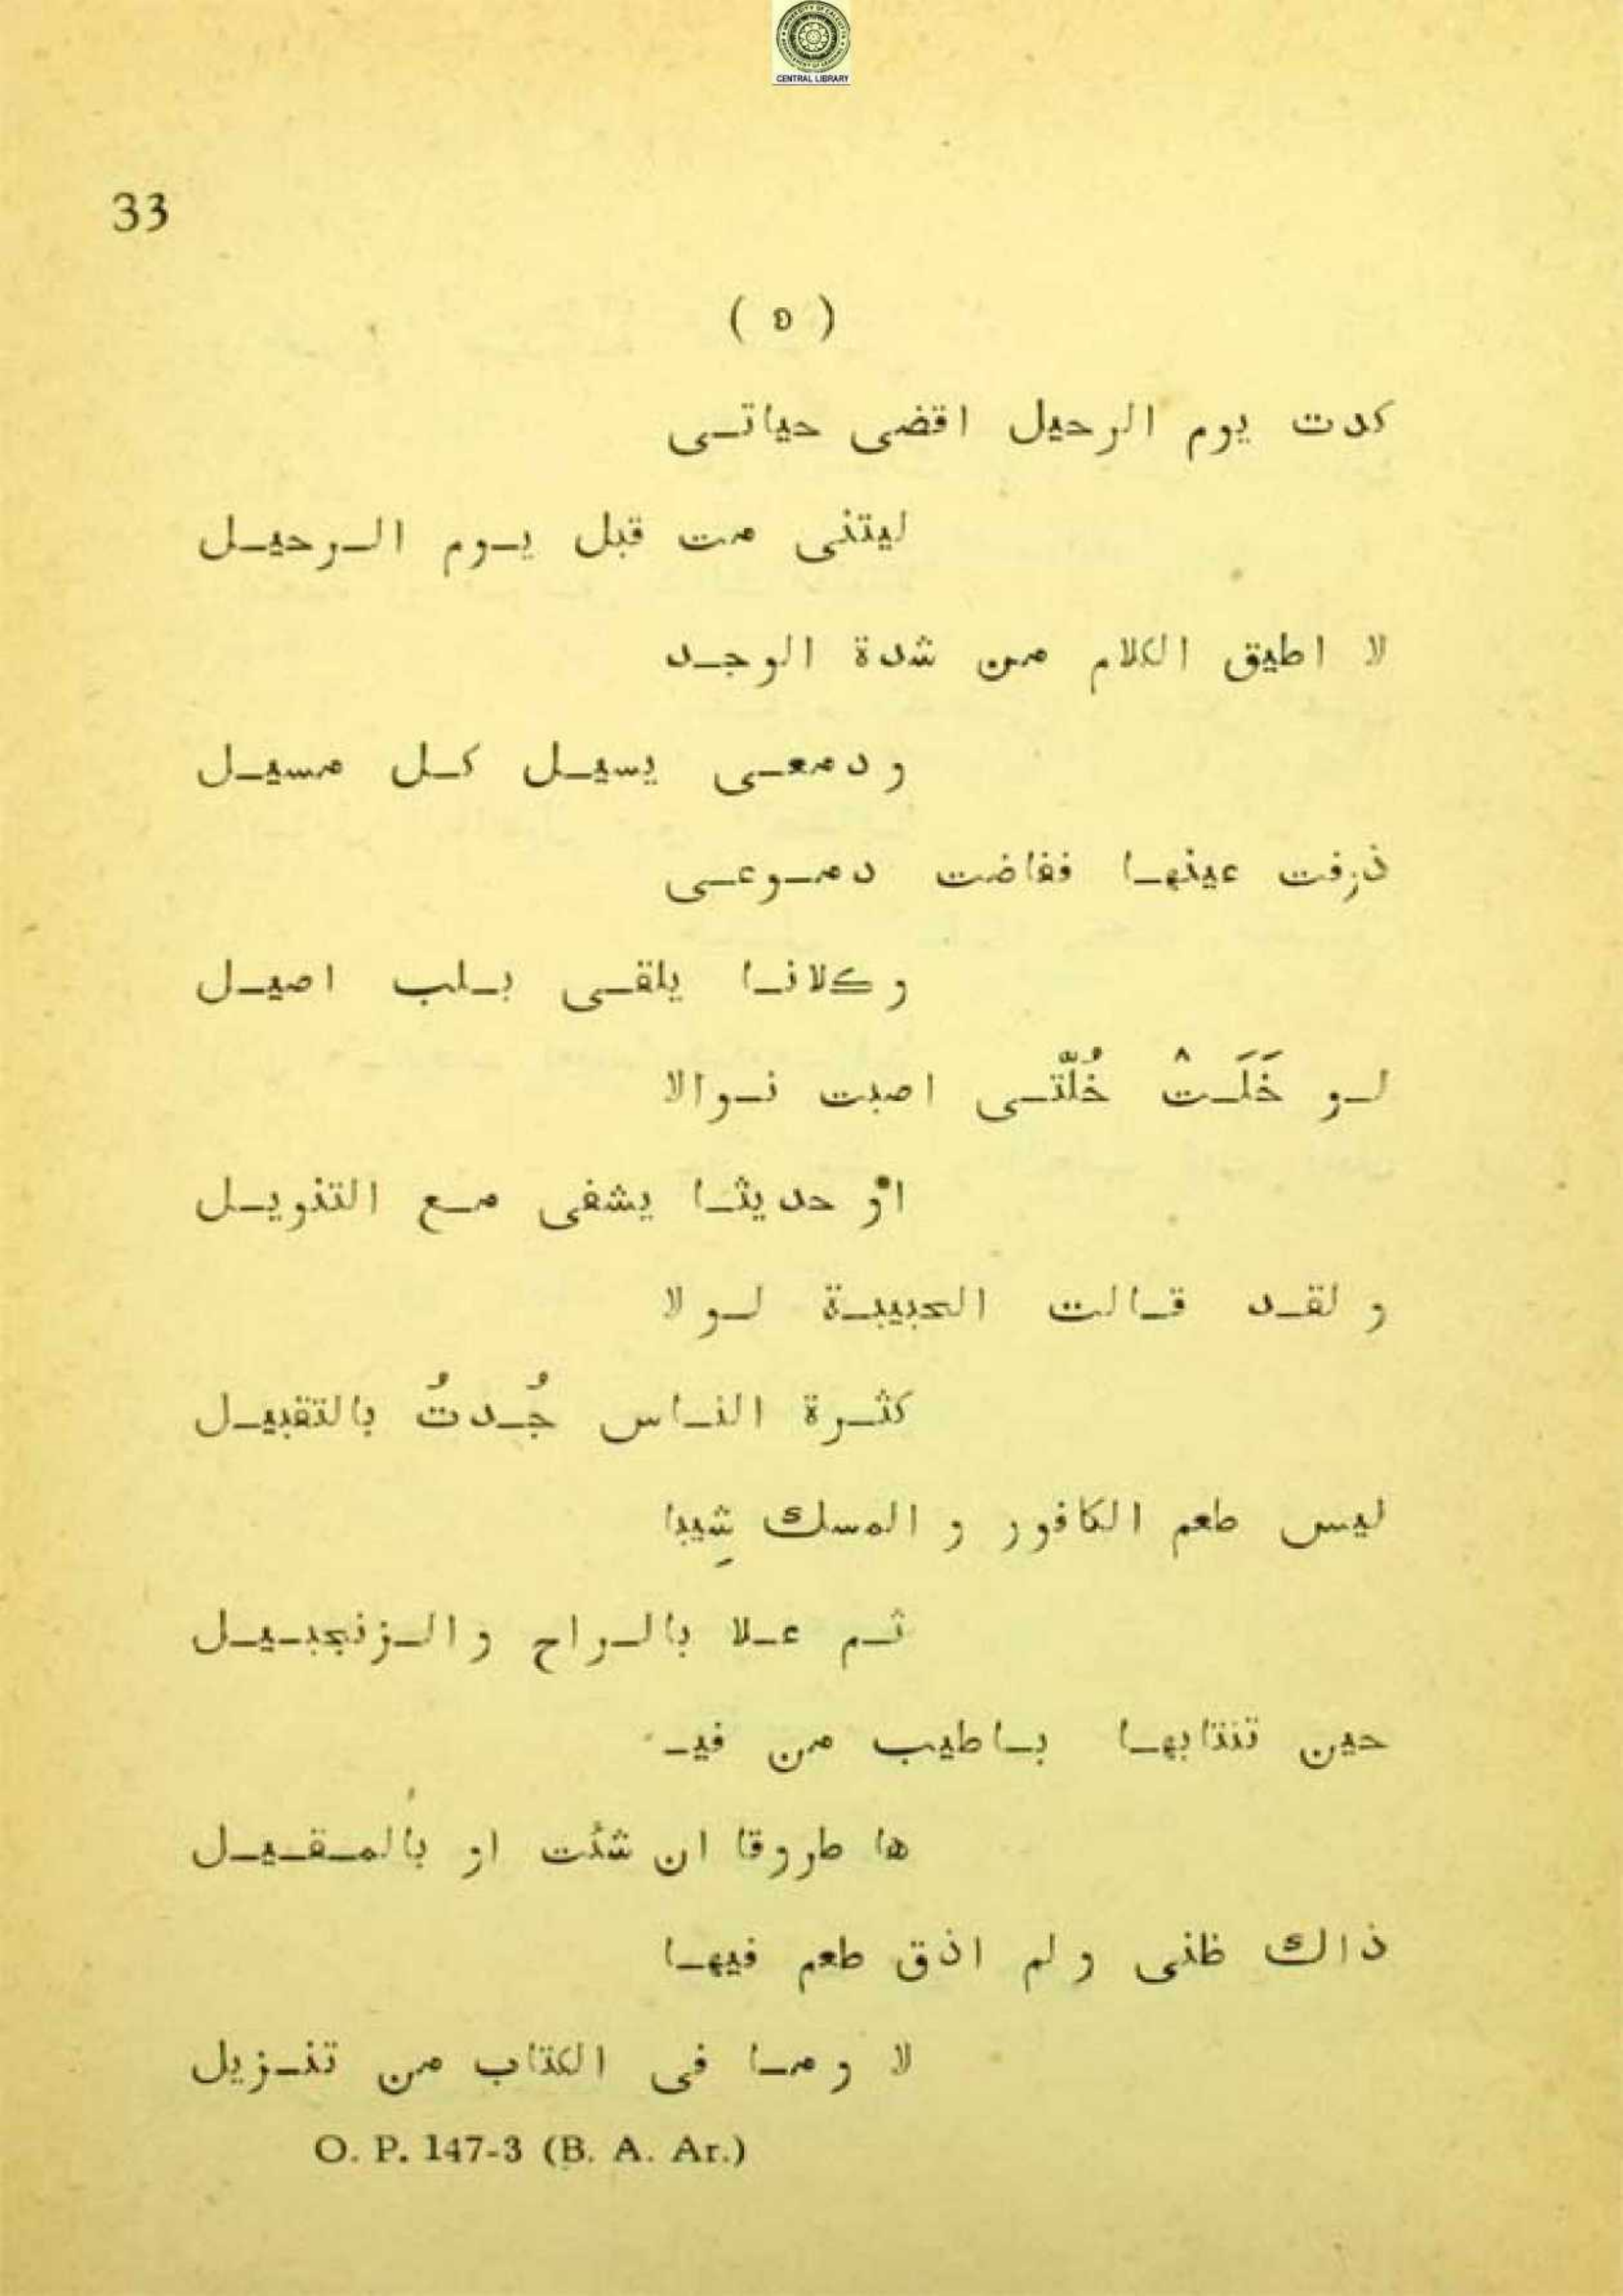 CENTRAL LIBRARY
33
( ٥ )
كدت يوم الرحيل اقضى حياتى
ليتنى مت قبل يوم الرحيل
لا اطيق الكلام من شدة الوجد
و دمعى يسيل كل مسيل
ذرفت عينها ففاضت دموعى
و كلانا يلقى بلب اصيل
لو خَلَتْ خُلّتى اصبت نوالا
اوْ حديثا يشفى مع التنويل
و لقد قالت الحبيبة لو لا
كثرة الناس جُدتُ بالتقبيل
ليس طعم الكافور و المسك شِيبا
ثم علا بالراح و الزنجبيل
حين تنتابها باطيب من فيـ
ها طروقا ان شئت او بالمقيل
ذاك ظنى و لم اذق طعم فيها
لا و ما فى الكتاب من تنزيل
O. P. 147-3 (B. A. Ar.)